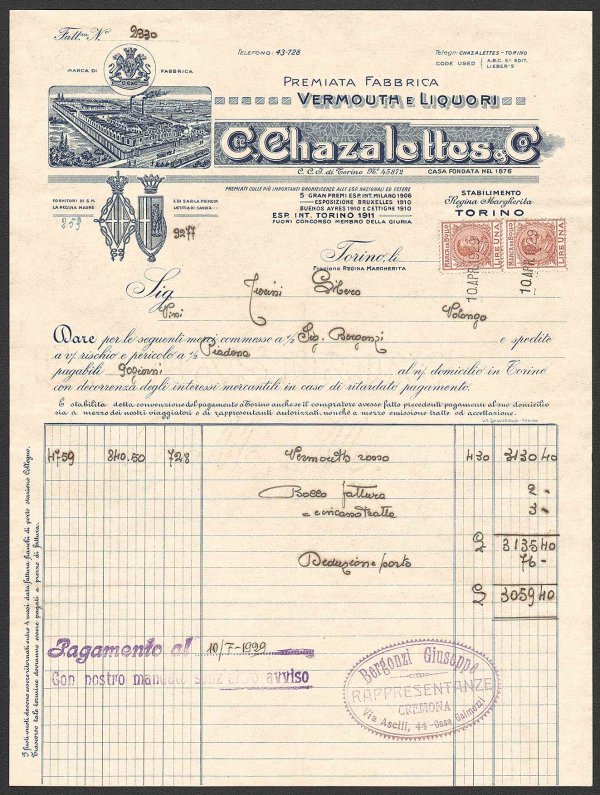 Fatt. N° 2230
TELEFONO: 43-728
Telegr. CHAZALETTES - TORINO
CODE USED A.B.C. 5ᵗ EDIT. LIEBER'S
MARCA DI FABBRICA
PREMIATA FABBRICA
VERMOUTH E LIQUORI
C. Chazalettes & C°
C. C. I. di Torino N° 45872
CASA FONDATA NEL 1876
FORNITORI DI S.M. LA REGINA MADRE
E DI S.A.R. LA PRINCIP. LETITIA DI SAVOIA
PREMIATI COLLE PIÙ IMPORTANTI ONORIFICENZE ALLE ESP. NAZIONALI ED ESTERE
5 GRAN PREMI ESP. INT. MILANO 1906
ESPOSIZIONE BRUXELLES 1910
BUENOS AYRES 1910 L'CETTIGNE 1910
ESP. INT. TORINO 1911
FUORI CONCORSO MEMBRO DELLA GIURIA
STABILIMENTO
Regina Margherita
TORINO
859
9277
MARCA DA BOLLO LIRE UNA
MARCA DA BOLLO LIRE UNA
10 APR 1929
10 APR 1929
Torino, li
Frazione REGINA MARGHERITA
Sig.
Vini Volongo
Dare per le seguenti merci commesse a/s Sig. Bergonzi e spedite
a v/ rischio e pericolo a 1/2 Piadena
pagabili 90 giorni al n/s domicilio in Torino
con decorrenza degli interessi mercantili in caso di ritardato pagamento.
È stabilita detta convenzione del pagamento a Torino anche se il compratore avesse fatto precedenti pagamenti al suo domicilio
sia a mezzo dei nostri viaggiatori e di rappresentanti autorizzati, nonchè a mezzo emissione tratte od accettazione.
4759 840.50 728 Vermouth rosso 430 3130 40
Bollo fattura 2 -
e incasso tratta 3 -
3135 40
Deduzione porto 76 -
3059 40
Pagamento al 10/7-1929
Con nostro mandato senz'altro avviso
Bergonzi Giuseppe
RAPPRESENTANZE
CREMONA
Via Aselli, 44 - Casa Galmozzi
I fusti vuoti devono essere ritornati entro 4 mesi data fattura franchi di porto stazione Collegno.
Trascorso tale termine dovranno essere pagati a prezzo di fattura.